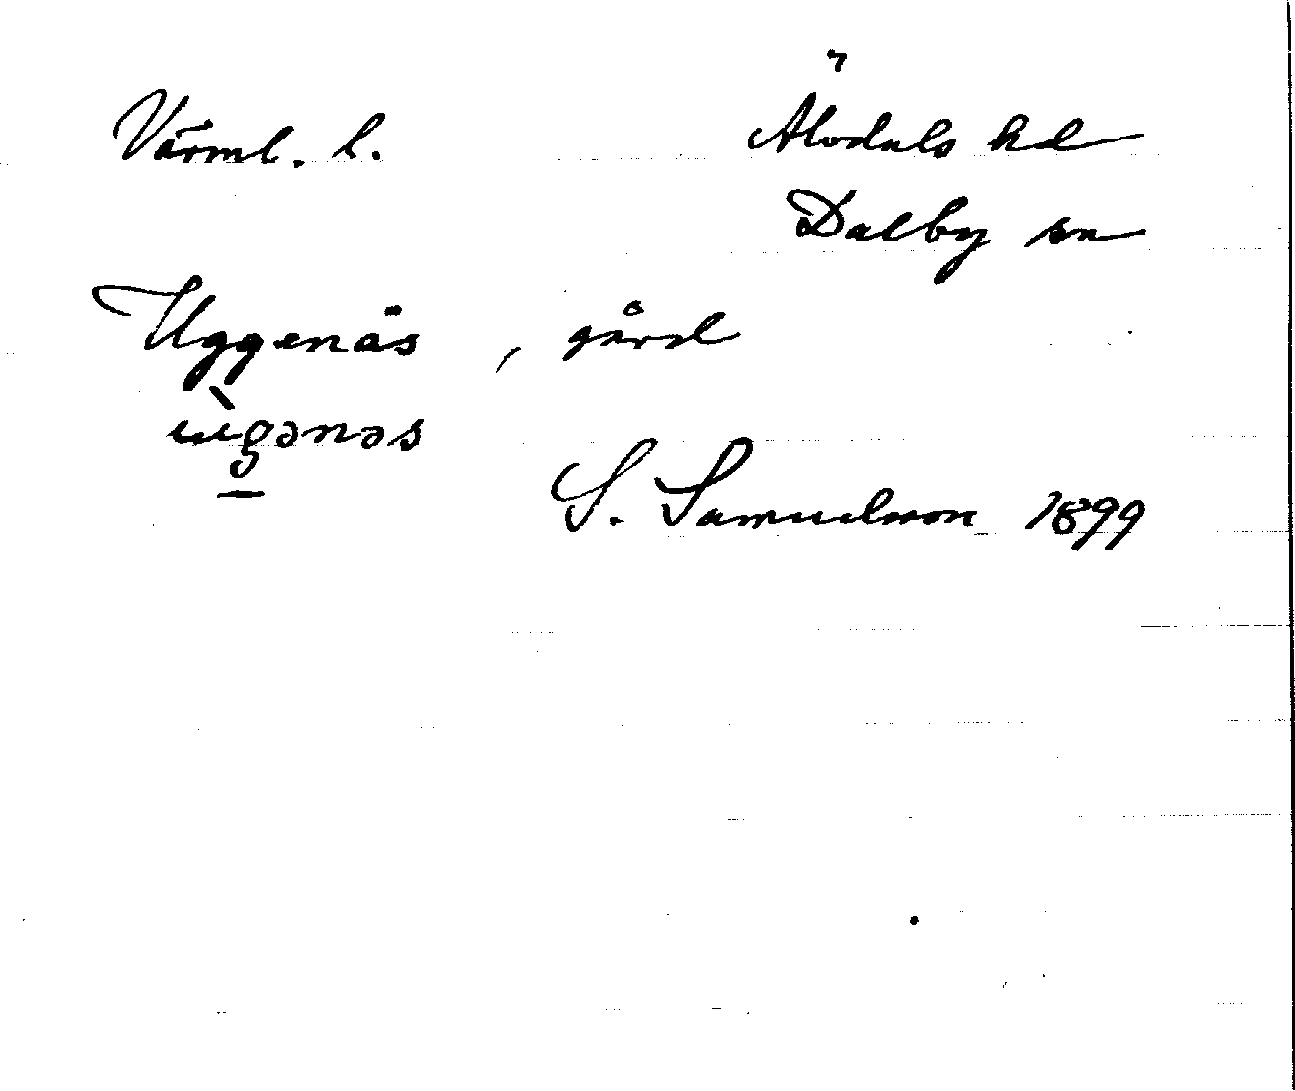 Värml. l. Älvdals hd
Dalby sn
Uggenäs, gård
ùgənəs
S. Samuelsson 1899